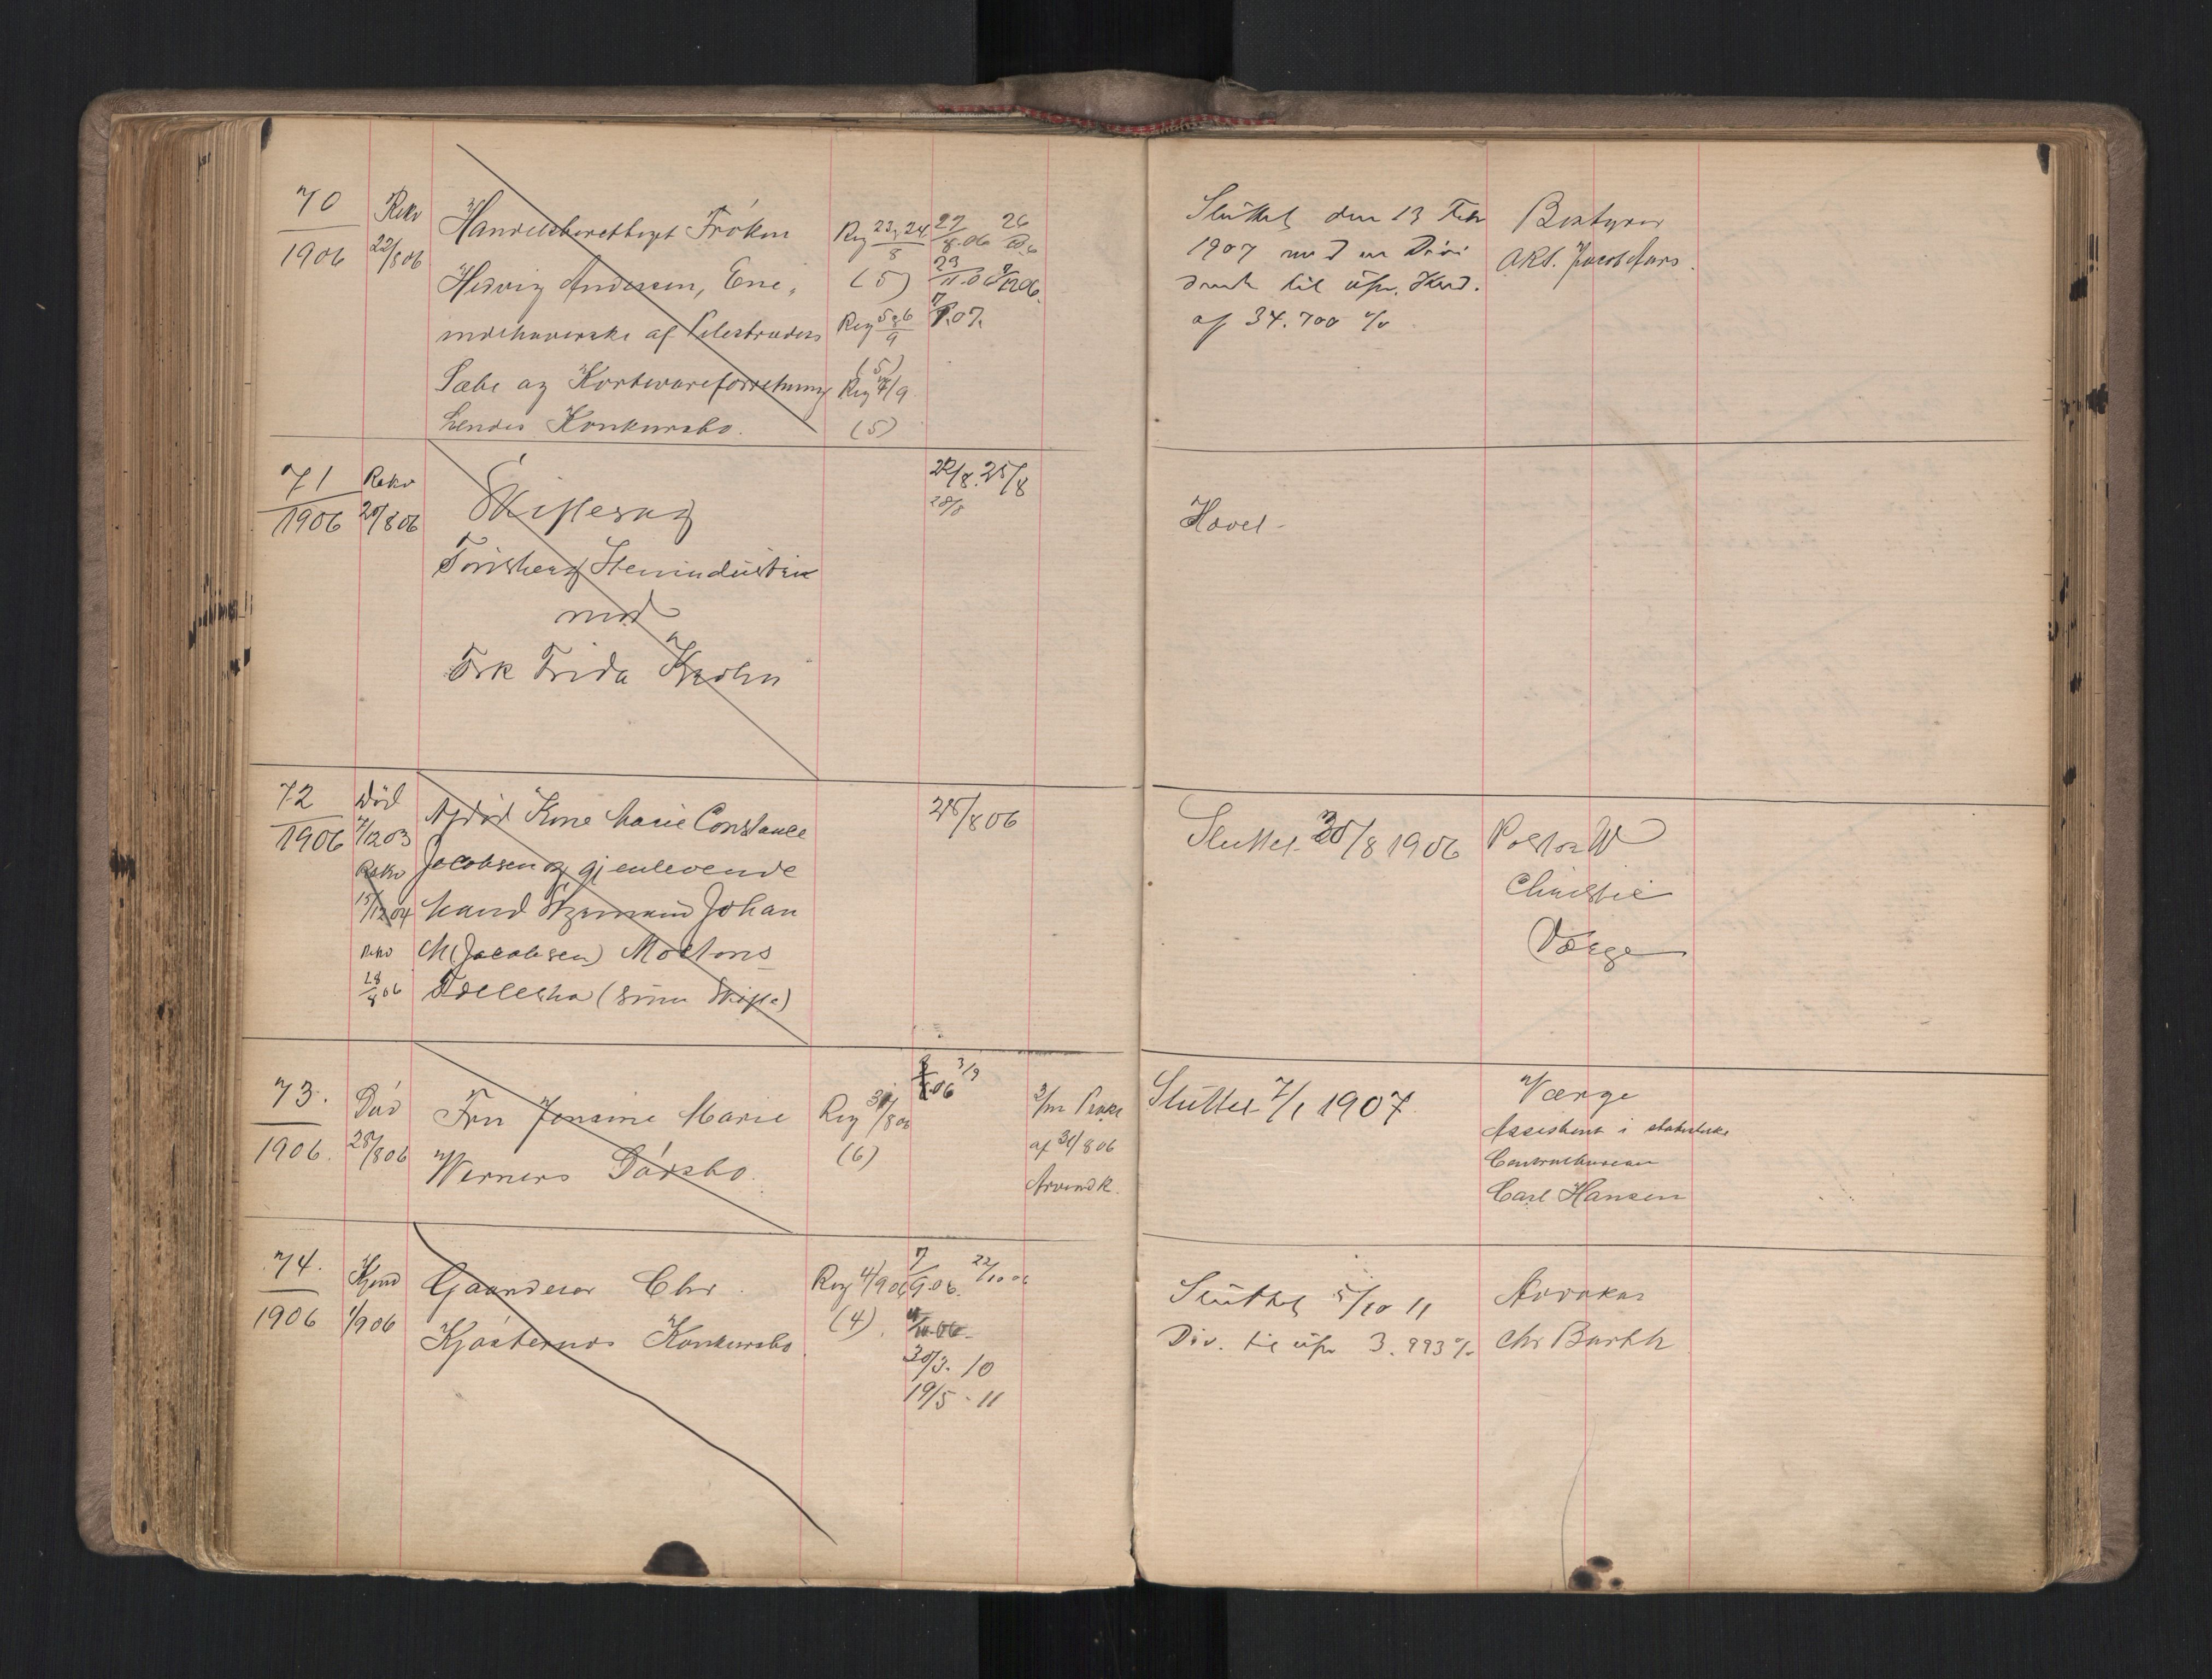 70
1906
Rekv
22/8 06
Handelsberettiget Frøken
Hedvig Andersen, Ene,
indehaverske af Pilestrædets
Sæbe og Kortevareforretning
hendes Konkursbo.
Reg 23 & 24/8
(5)
Reg 5 & 6/9
(5)
Reg 7/9
(5)
27/8.06
29/11.06
7/12 06.
Sluttet den 13 Feb
1907 med en Divi
dende til upr. Kred.
af 34.700 %
Bestyrer
ORS. Jacob Aars.
71
1906
Rekv
20/8 06
Skiftesag
Tønsberg Stenindustri
mod
Frk Frida Krohn
22/8. 25/8
28/8
Hævet.
72
1906
Død
7/12 03
Rekv
15/12 04
Rekv
18/8 06
Afdød Kone Marie Constance
Jacobsen og gjenlevende
Mand Styrmand Johan
M (Jacobsen) Mortens
Fællesbo (Summ Skifte)
25/8 06
Sluttet 30/8 1906
Pastor W
Christie
Værge
73.
1906.
Død
28/8 06
Fru Jensine Marie
Werners Dødsbo.
Reg 31/8 06
(6)
3/9
3/m Prokl
af 31/8 06
Arvend K.
Sluttet 7/1 1907.
Værge
Assistent i statistiske
Centralbureau
Carl Hansen
74.
1906
Kjend
1/9 06
Gaardeier Chr.
Kjøsternos Konkursbo
Reg 4/9 06
(4).
7/9.06.
22/10 06
30/3. 10
19/5 - 11
Sluttet 5/10 11
Div. til upr 3.993 %
Advokat
Chr Barth